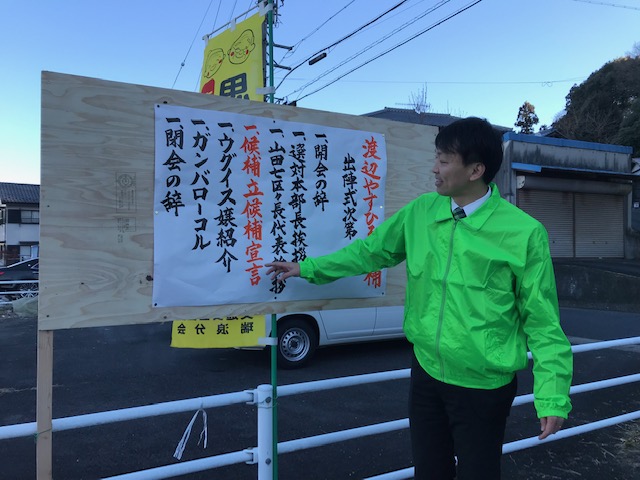 渡辺やすひ補
出陣式次第
一.開会の辞
一.選対本部長挨拶
一.山田七区ヶ長代表挨拶
一.候補立候補宣言
一.ウグイス嬢紹介
一.ガンバローコル
一.閉会の辞
黒